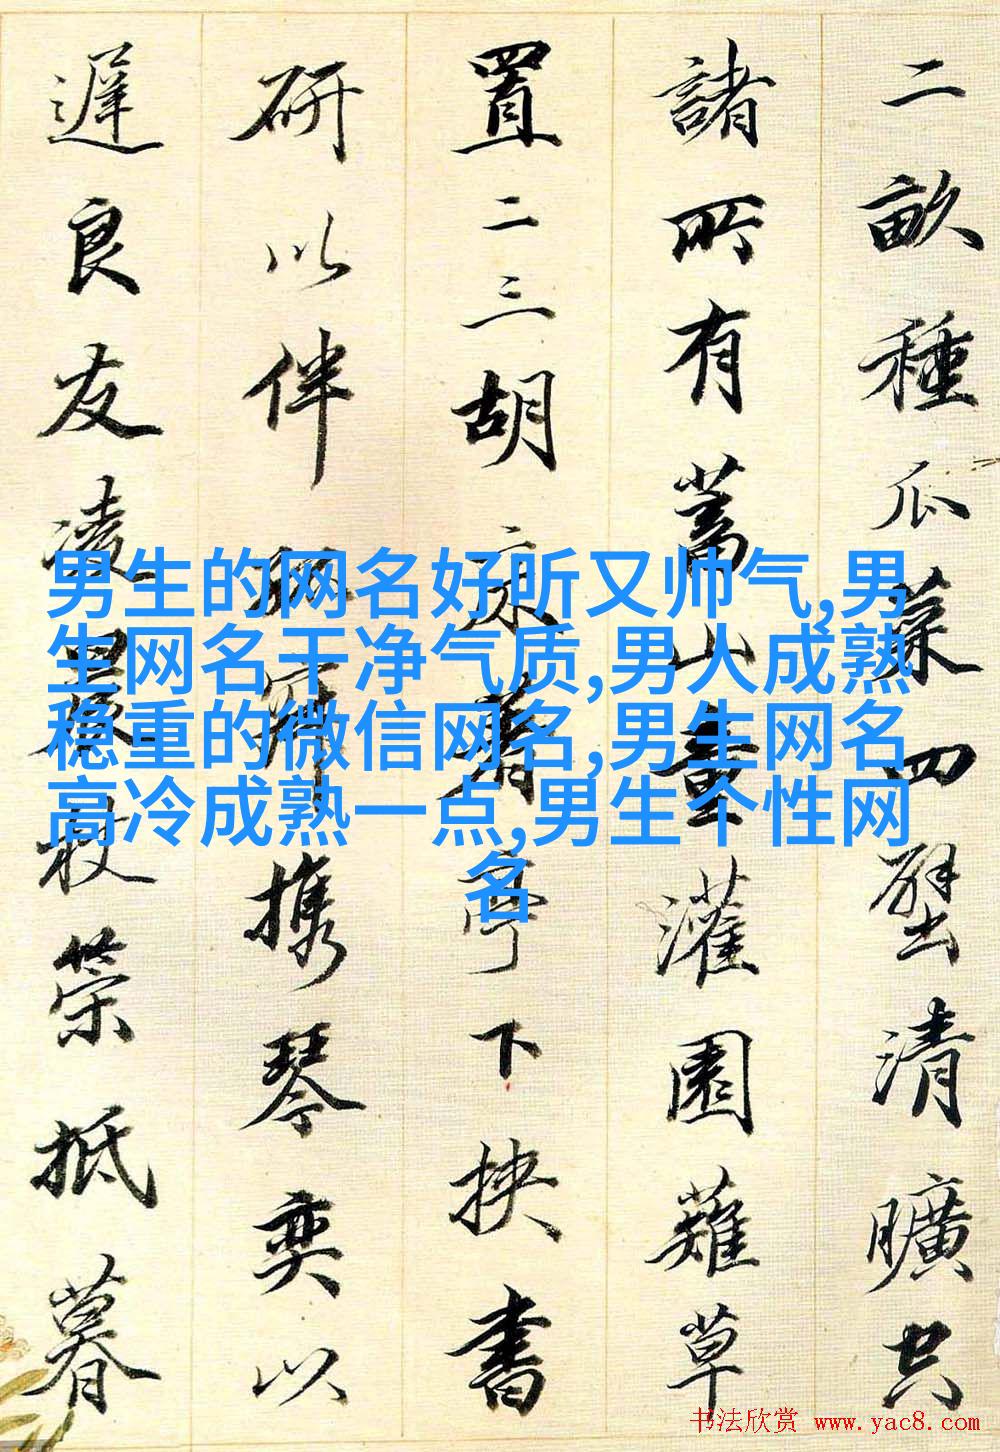 二畝種瓜菜四壁清曠空
諸所有蓄山童灌園薙草
置二三胡床著亭下挾書
研以伴孤寂攜琴奕以
遲良友凌晨杖策抵暮
男生的网名好听又帅气,男
生网名干净气质,男人成熟
稳重的微信网名,男生网名
高冷成熟一点,男生个性网
名
书法欣赏 www.yac8.com